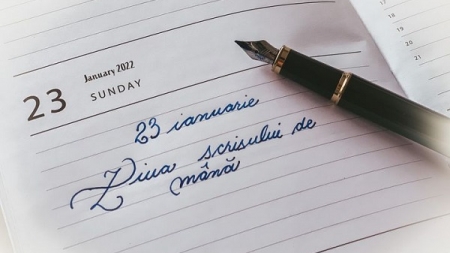 January 2022
23 SUNDAY
23 ianuarie
Ziua scrisului de
mână
17
18
19
20
21